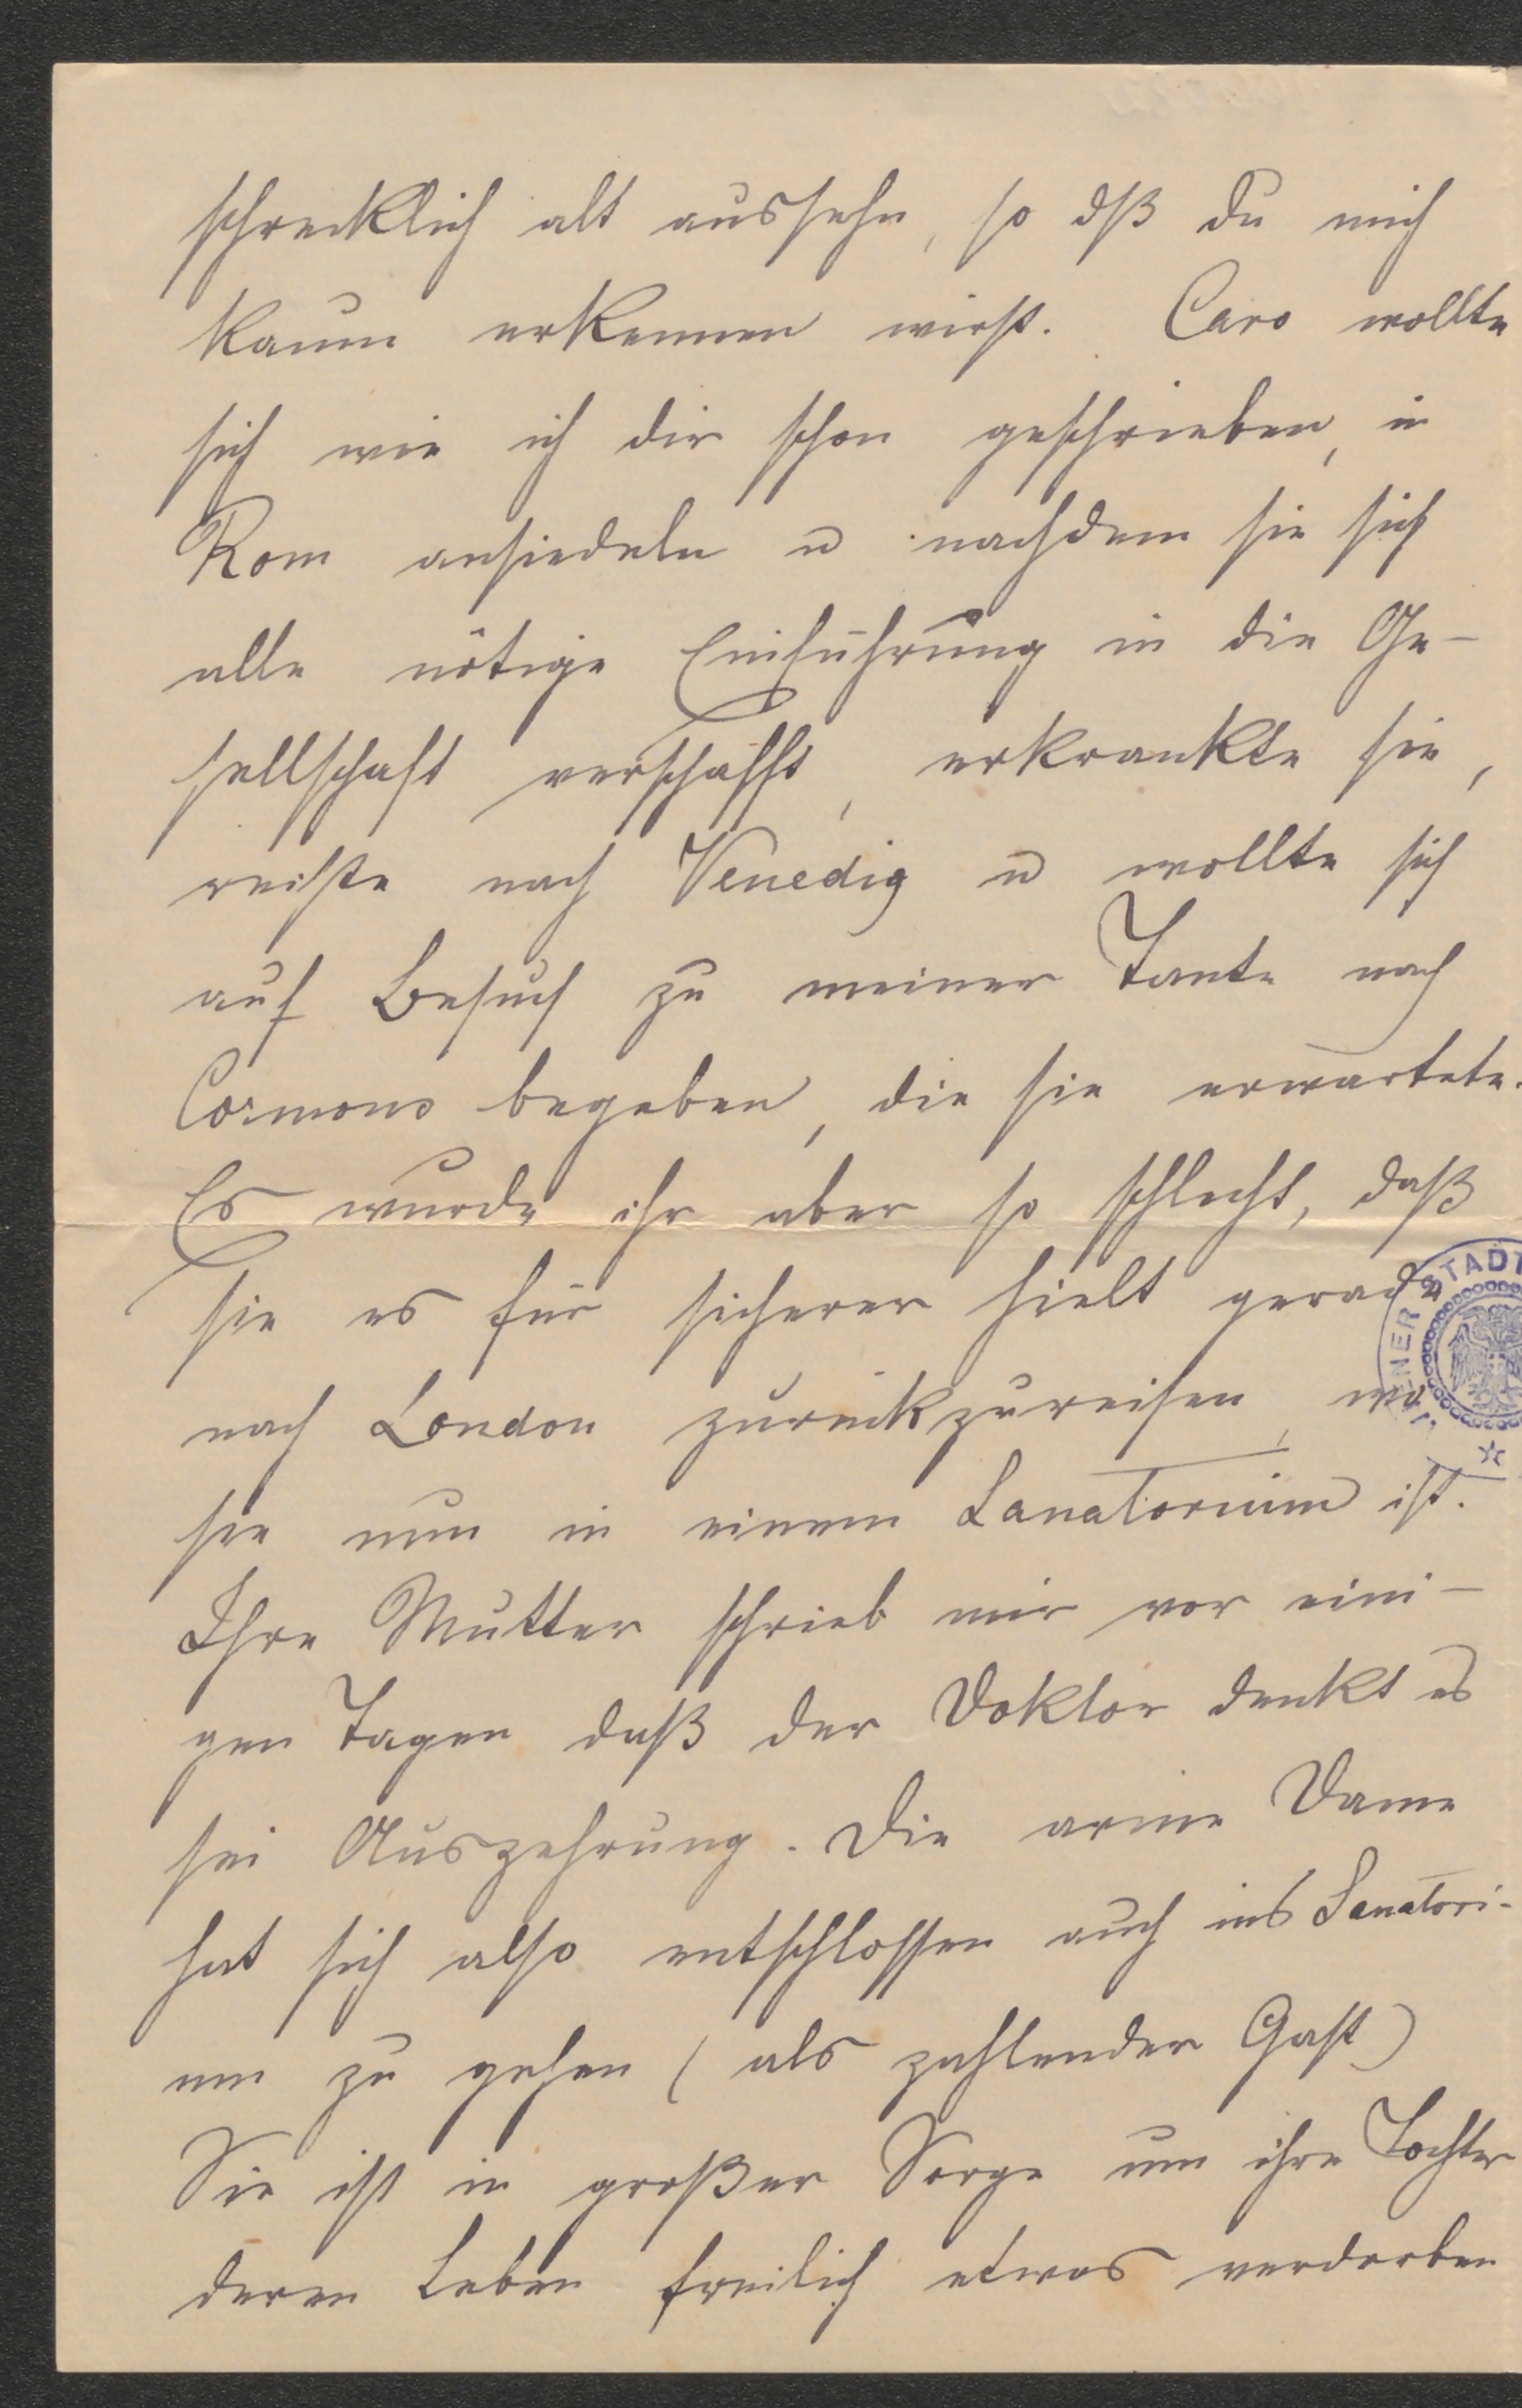 schrecklich alt aussehn, so dß du mich
kaum erkennen wirst. Caro wollte
sich wie ich dir schon geschrieben, in
Rom ansiedeln u nachdem sie sich
alle nötige Einführung in die Ge-
sellschaft verschafft, erkrankte sie,
reiste nach Venedig u wollte sich
auf Besuch zu meiner Tante nach
Cormons begeben, die sie erwartete.
Es wurde ihr aber so schlecht, daß
sie es für sicherer hielt gerade
nach London zurückzureisen, wo
sie nun in einem Sanatorium ist.
Ihre Mutter schrieb mir vor eini-
gen Tagen daß der Doktor denkt es
sei Auszehrung. Die arme Dame
hat sich also entschlossen auch ins Sanatori-
um zu gehen (als zahlender Gast)
Sie ist in großer Sorge um ihre Tochter
deren Leben freilich etwas verdorben